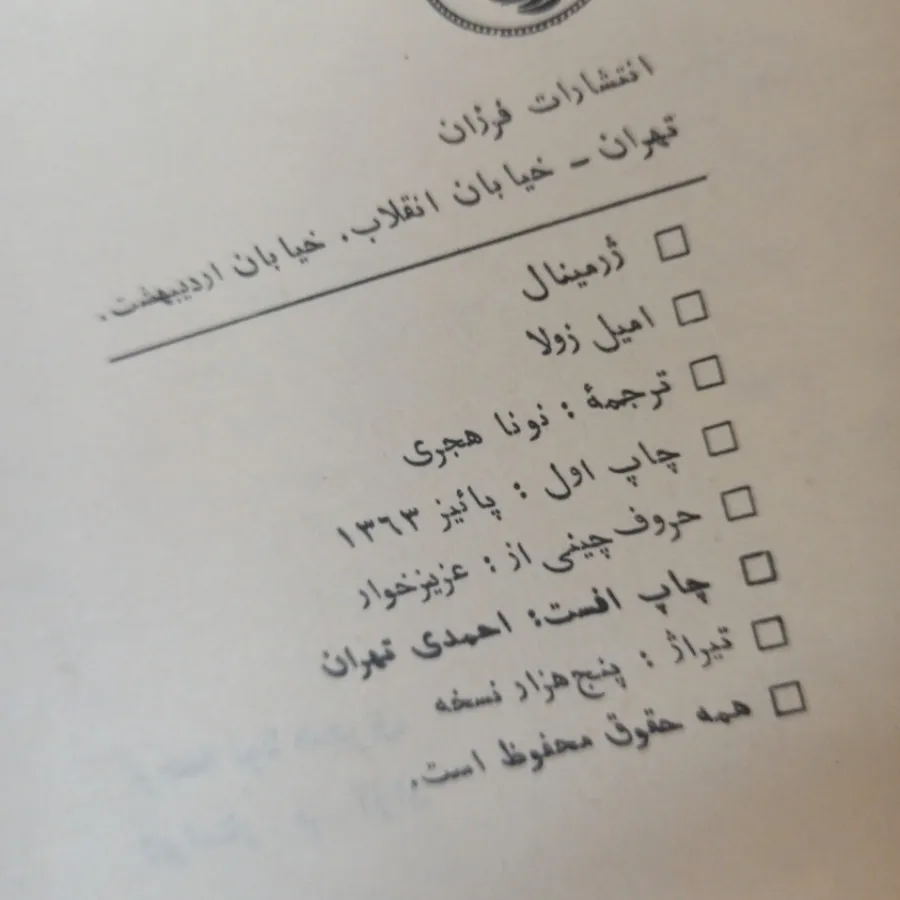 انتشارات فرزان
تهران - خیابان انقلاب. خیابان اردیبهشت.
□ ژرمینال
□ امیل زولا
□ ترجمهٔ : نونا هجری
□ چاپ اول : پائیز ۱۳۶۳
□ حروف چینی از : عزیزخوار
□ چاپ افست: احمدی تهران
□ تیراژ : پنج هزار نسخه
□ همه حقوق محفوظ است.